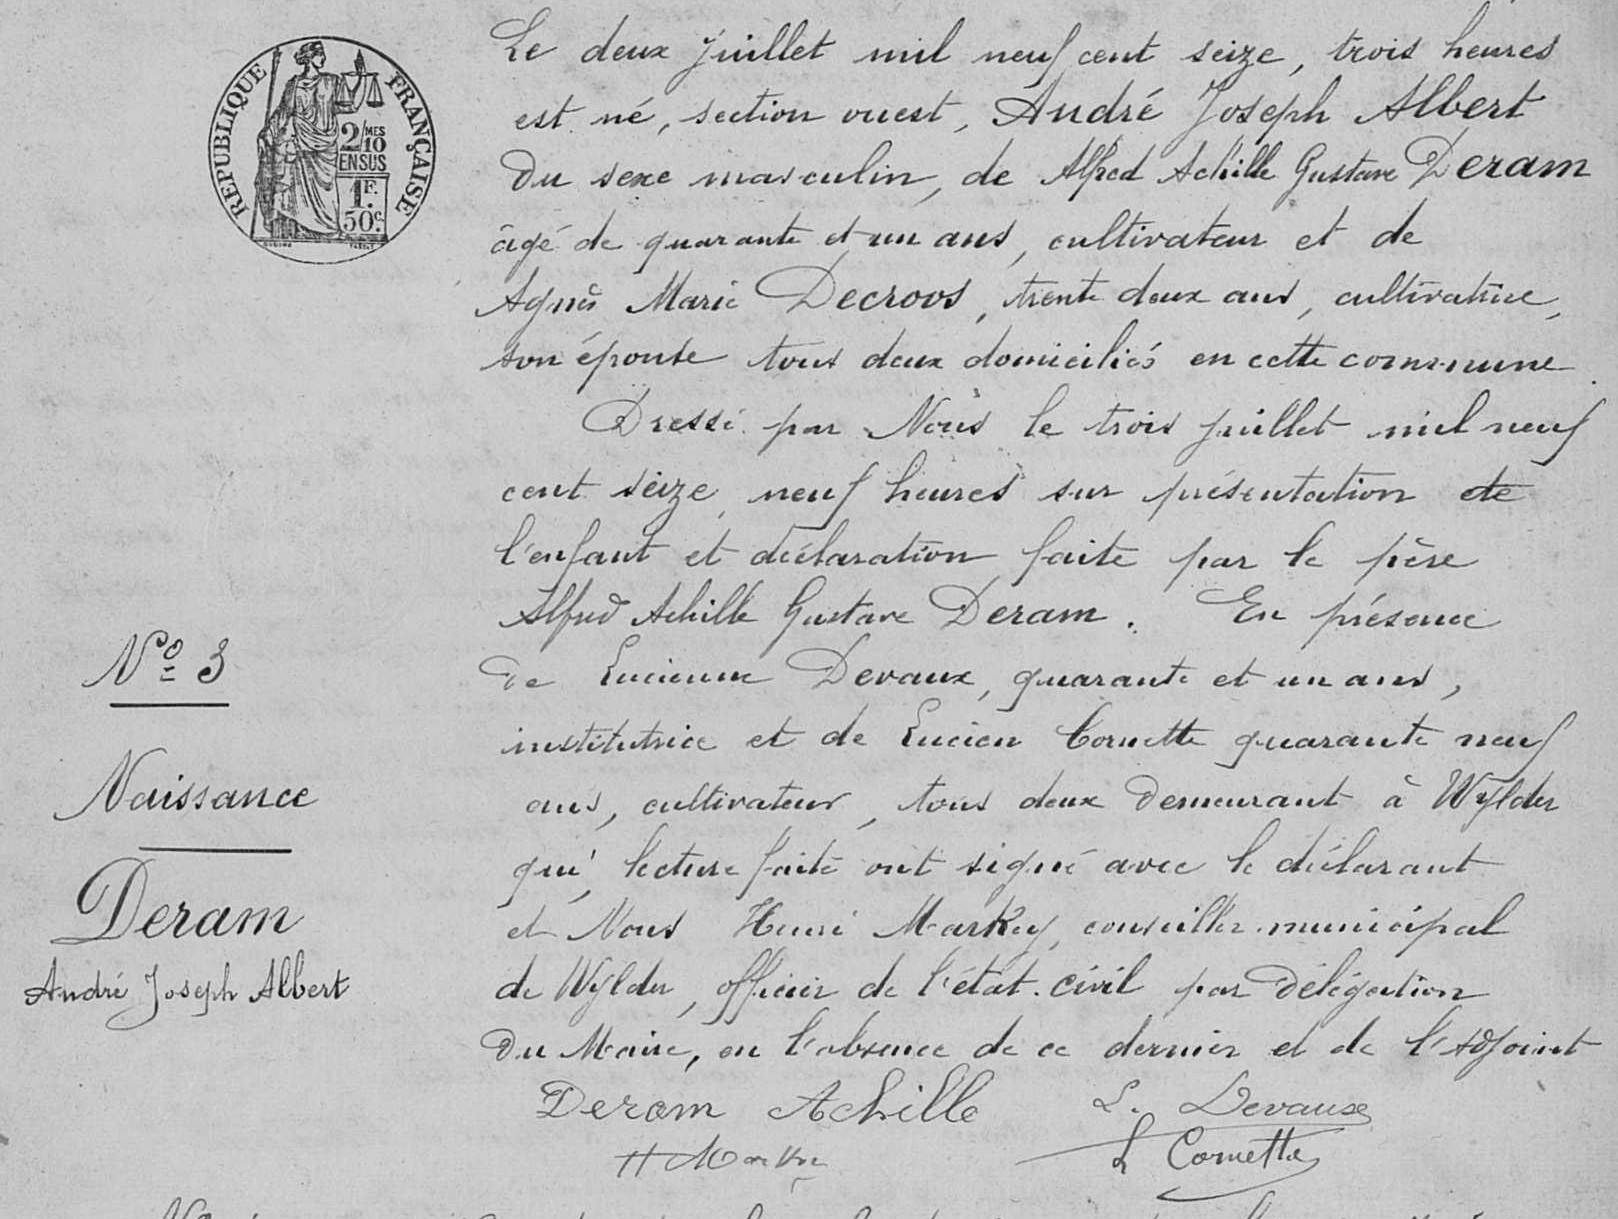 RÉPUBLIQUE FRANÇAISE
2/10MES
EN SUS
1F.
50c.
Le deux Juillet mil neuf cent seize, trois heures
est né, section ouest, André Joseph Albert
du sexe masculin, de Alfred Achille Gustave Deram
âgé de quarante et un ans, cultivateur et de
Agnès Marie Decroos, trente deux ans, cultivatrice,
son épouse tous deux domiciliés en cette commune
Dressé par Nous le trois juillet mil neuf
cent seize, neuf heures sur présentation de
l'enfant et déclaration faite par le père
Alfred Achille Gustave Deram. En présence
de Lucienne Devaux, quarante et un ans,
institutrice et de Lucien Cornette quarante neuf
ans, cultivateur, tous deux demeurant à Wylder
qui, lecture faite ont signé avec le déclarant
et Nous Henri Markey, conseiller municipal
de Wylder, officier de l'état civil par délégation
du Maire, en l'absence de ce dernier et de l'adjoint
Deram Achille L. Devaux
H Markey L Cornette
No 3
Naissance
Deram
André Joseph Albert